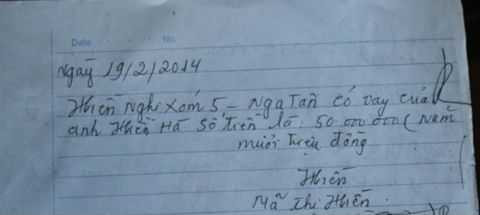 Date No.
Ngày 19/2/2014
Hiền Nghi xóm 5 - Nga Tân có vay của
anh Hiền Hà Số tiền là: 50 000 000 ( Năm
mươi triệu đồng
Hiền
Mã Thị Hiền